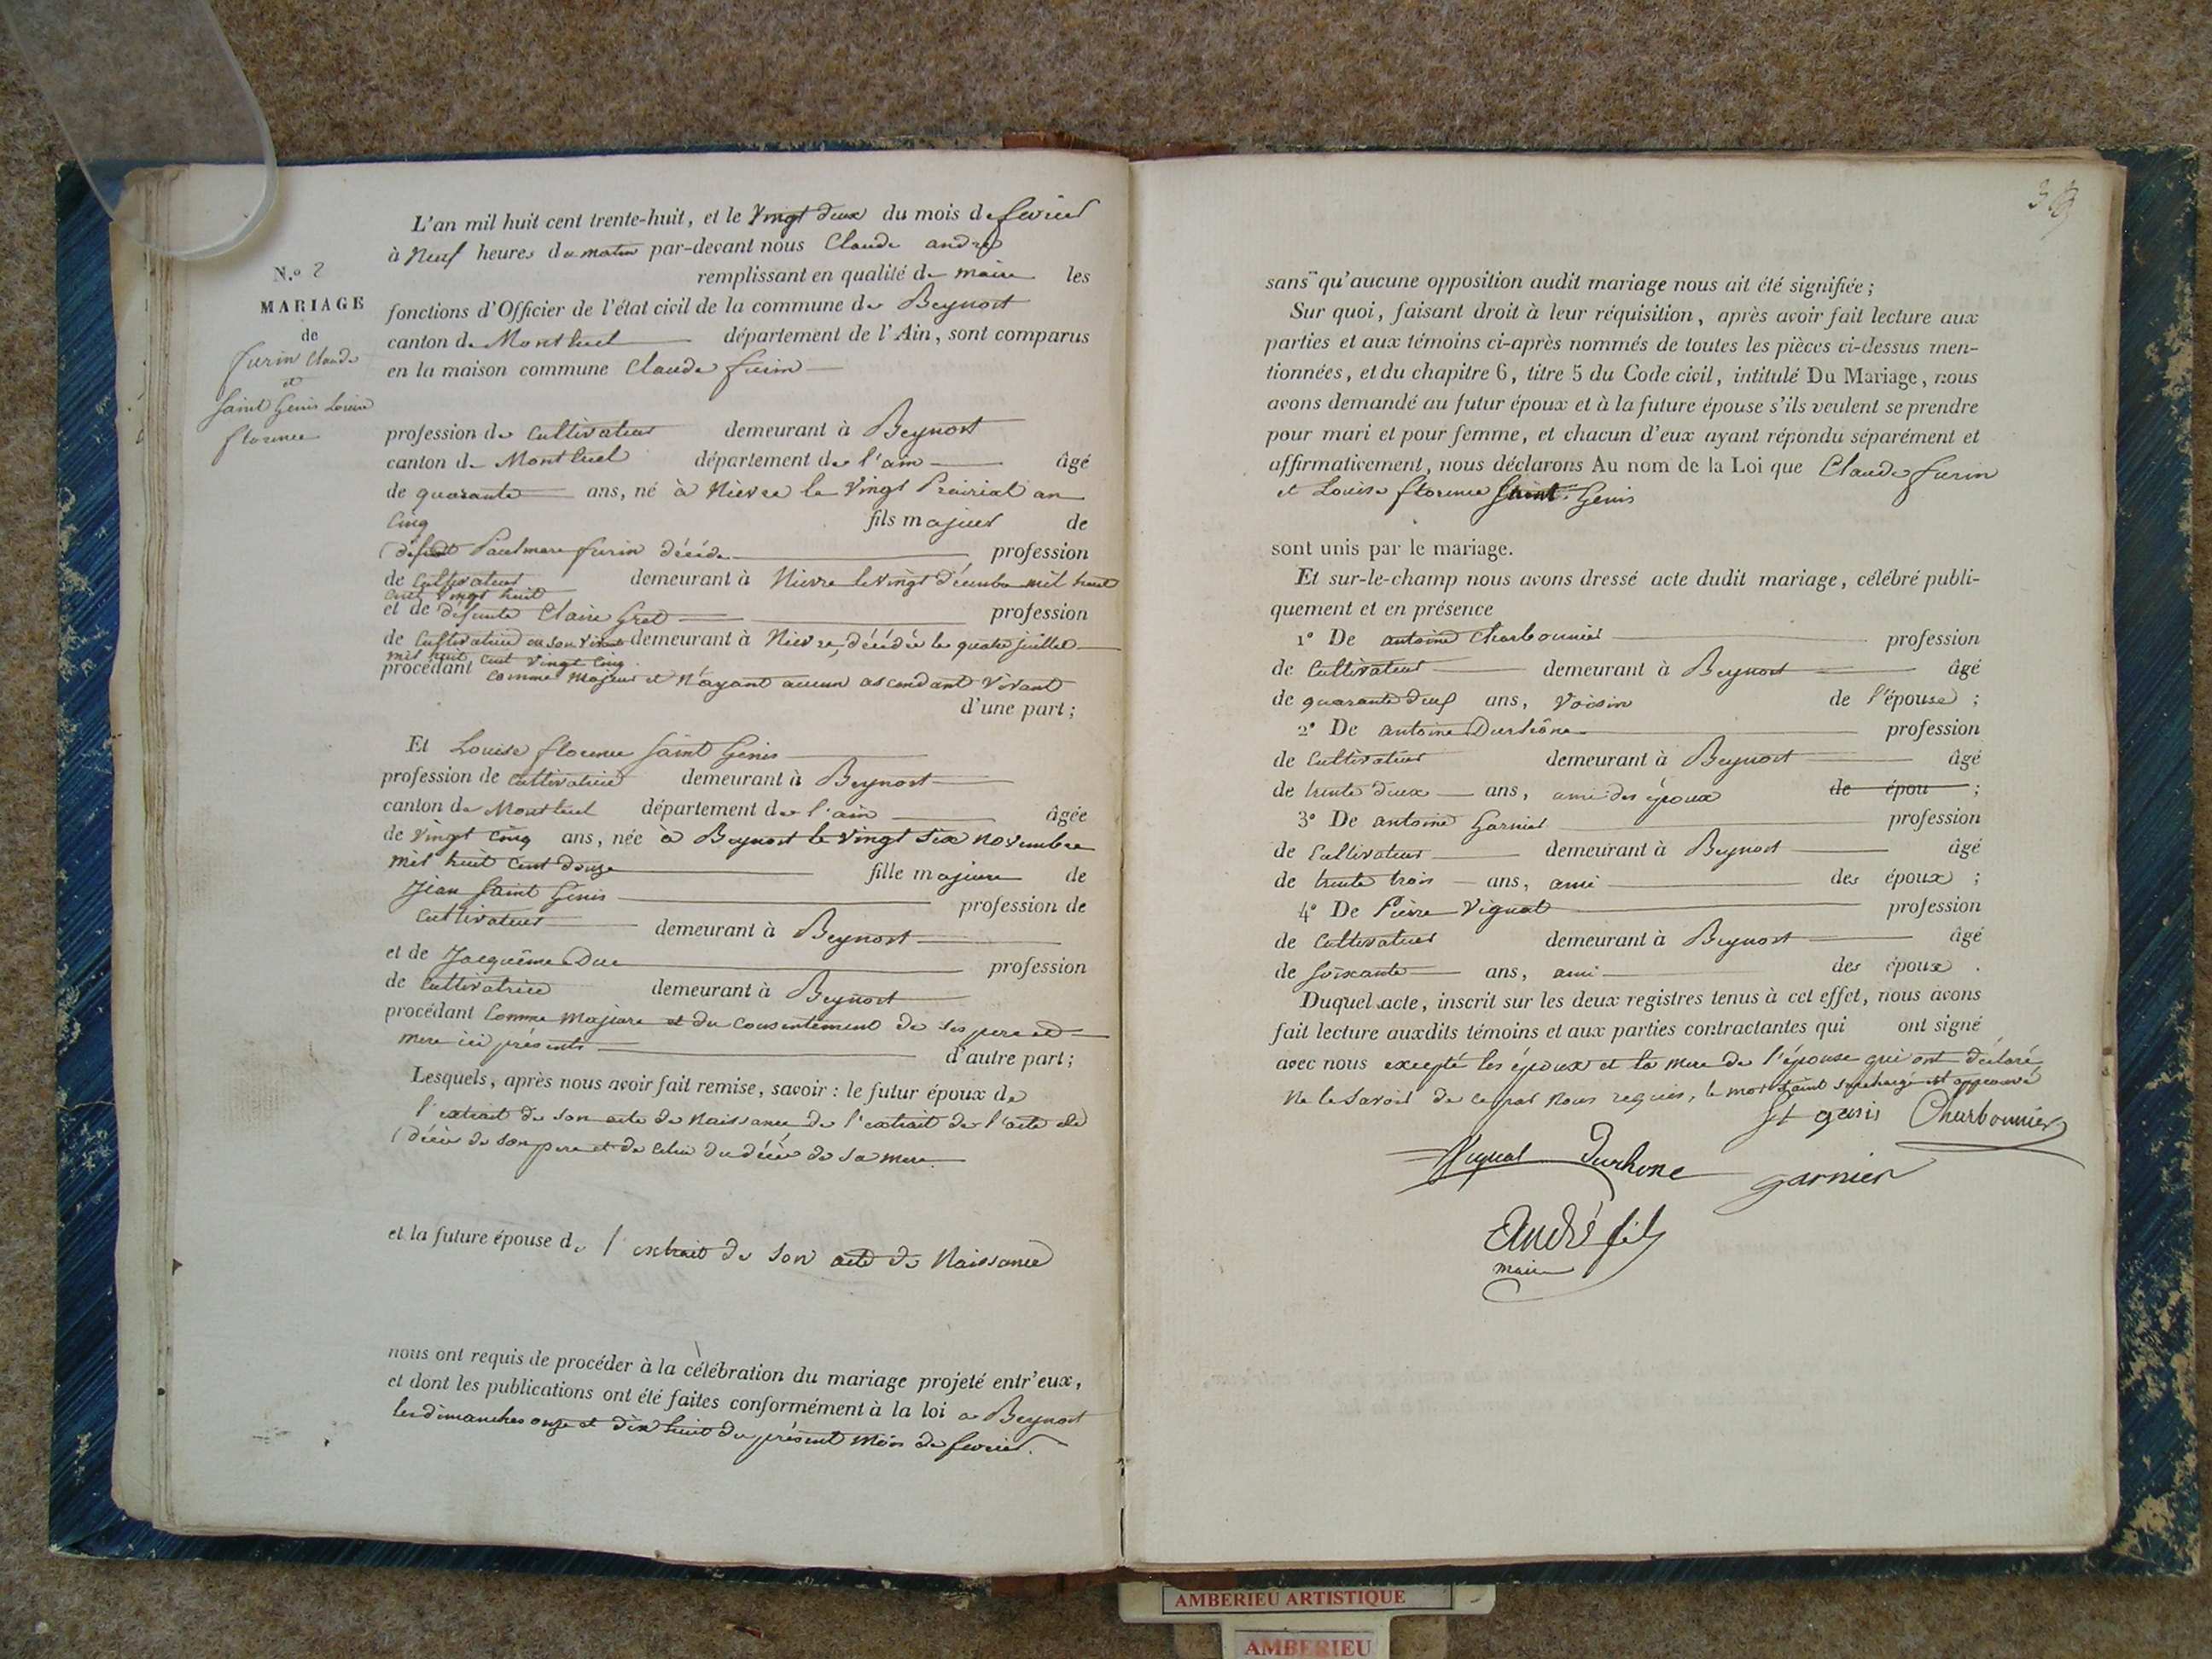 N.º 2
MARIAGE
de
furin Claude
et
Saint Genis Louise
florence
L'an mil huit cent trente-huit, et le Vingt deux du mois de fevrier
à Neuf heures du matin par-devant nous Claude andré
remplissant en qualité de maire les
fonctions d'Officier de l'état civil de la commune de Beynost
canton de Montluel département de l'Ain, sont comparus
en la maison commune Claude furin
profession de Cultivateur demeurant à Beynost
canton de Montluel département de l'ain âgé
de quarante ans, né à Nievre le Vingt Prairial an
Cinq fils majeur de
défunt Paulmare furin décédé profession
de Cultivateur demeurant à Nievre le vingt décembre mil huit
cent vingt huit
et de défunte Claire Gret profession
de Cultivatrice en son vivant demeurant à Nievre, décédée le quatre juillet
mil huit cent vingt cinq
procédant comme majeur et n'ayant aucun ascendant vivant
d'une part ;
Et Louise florence Saint Genis
profession de cultivatrice demeurant à Beynost
canton de Montluel département de l'ain âgée
de vingt cinq ans, née à Beynost le vingt six novembre
mil huit cent douze fille majeure de
Jean Saint Genis profession de
Cultivateur demeurant à Beynost
et de Jacquême Duc profession
de Cultivatrice demeurant à Beynost
procédant Comme majeure et du consentement de ses pere et
mere ici présents d'autre part ;
Lesquels, après nous avoir fait remise, savoir : le futur époux de
l'extrait de son acte de Naissance de l'extrait de l'acte de
décès de son pere et de celui du décès de sa mere.
et la future épouse de l'extrait de son acte de Naissance
nous ont requis de procéder à la célébration du mariage projeté entr'eux,
et dont les publications ont été faites conformément à la loi a Beynost
les dimanches onze et dix huit du présent mois de fevrier.
sans qu'aucune opposition audit mariage nous ait été signifiée ;
Sur quoi, faisant droit à leur réquisition, après avoir fait lecture aux
parties et aux témoins ci-après nommés de toutes les pièces ci-dessus men-
tionnées, et du chapitre 6, titre 5 du Code civil, intitulé Du Mariage, nous
avons demandé au futur époux et à la future épouse s'ils veulent se prendre
pour mari et pour femme, et chacun d'eux ayant répondu séparément et
affirmativement, nous déclarons Au nom de la Loi que Claude furin
et Louise florence Saint Genis
sont unis par le mariage.
Et sur-le-champ nous avons dressé acte dudit mariage, célébré publi-
quement et en présence
1º De antoine Charbonnier profession
de Cultivateur demeurant à Beynost âgé
de quarante deux ans, Voisin de l'épouse ;
2º De antoine Durhône profession
de Cultivateur demeurant à Beynost âgé
de trente deux ans, ami des époux de épou ;
3º De antoine Garnier profession
de Cultivateur demeurant à Beynost âgé
de trente trois ans, ami des époux ;
4º De Pierre Vignat profession
de Cultivateur demeurant à Beynost âgé
de soixante ans, ami des époux .
Duquel acte, inscrit sur les deux registres tenus à cet effet, nous avons
fait lecture auxdits témoins et aux parties contractantes qui ont signé
avec nous excepté les époux et la mere de l'épouse qui ont déclaré
Ne le savoir de ce par Nous requis, le mot Saint surchargé est approuvé
St genis Charbonnier
Vignat Durhone garnier
André fils
maire
AMBERIEU ARTISTIQUE
AMBERIEU